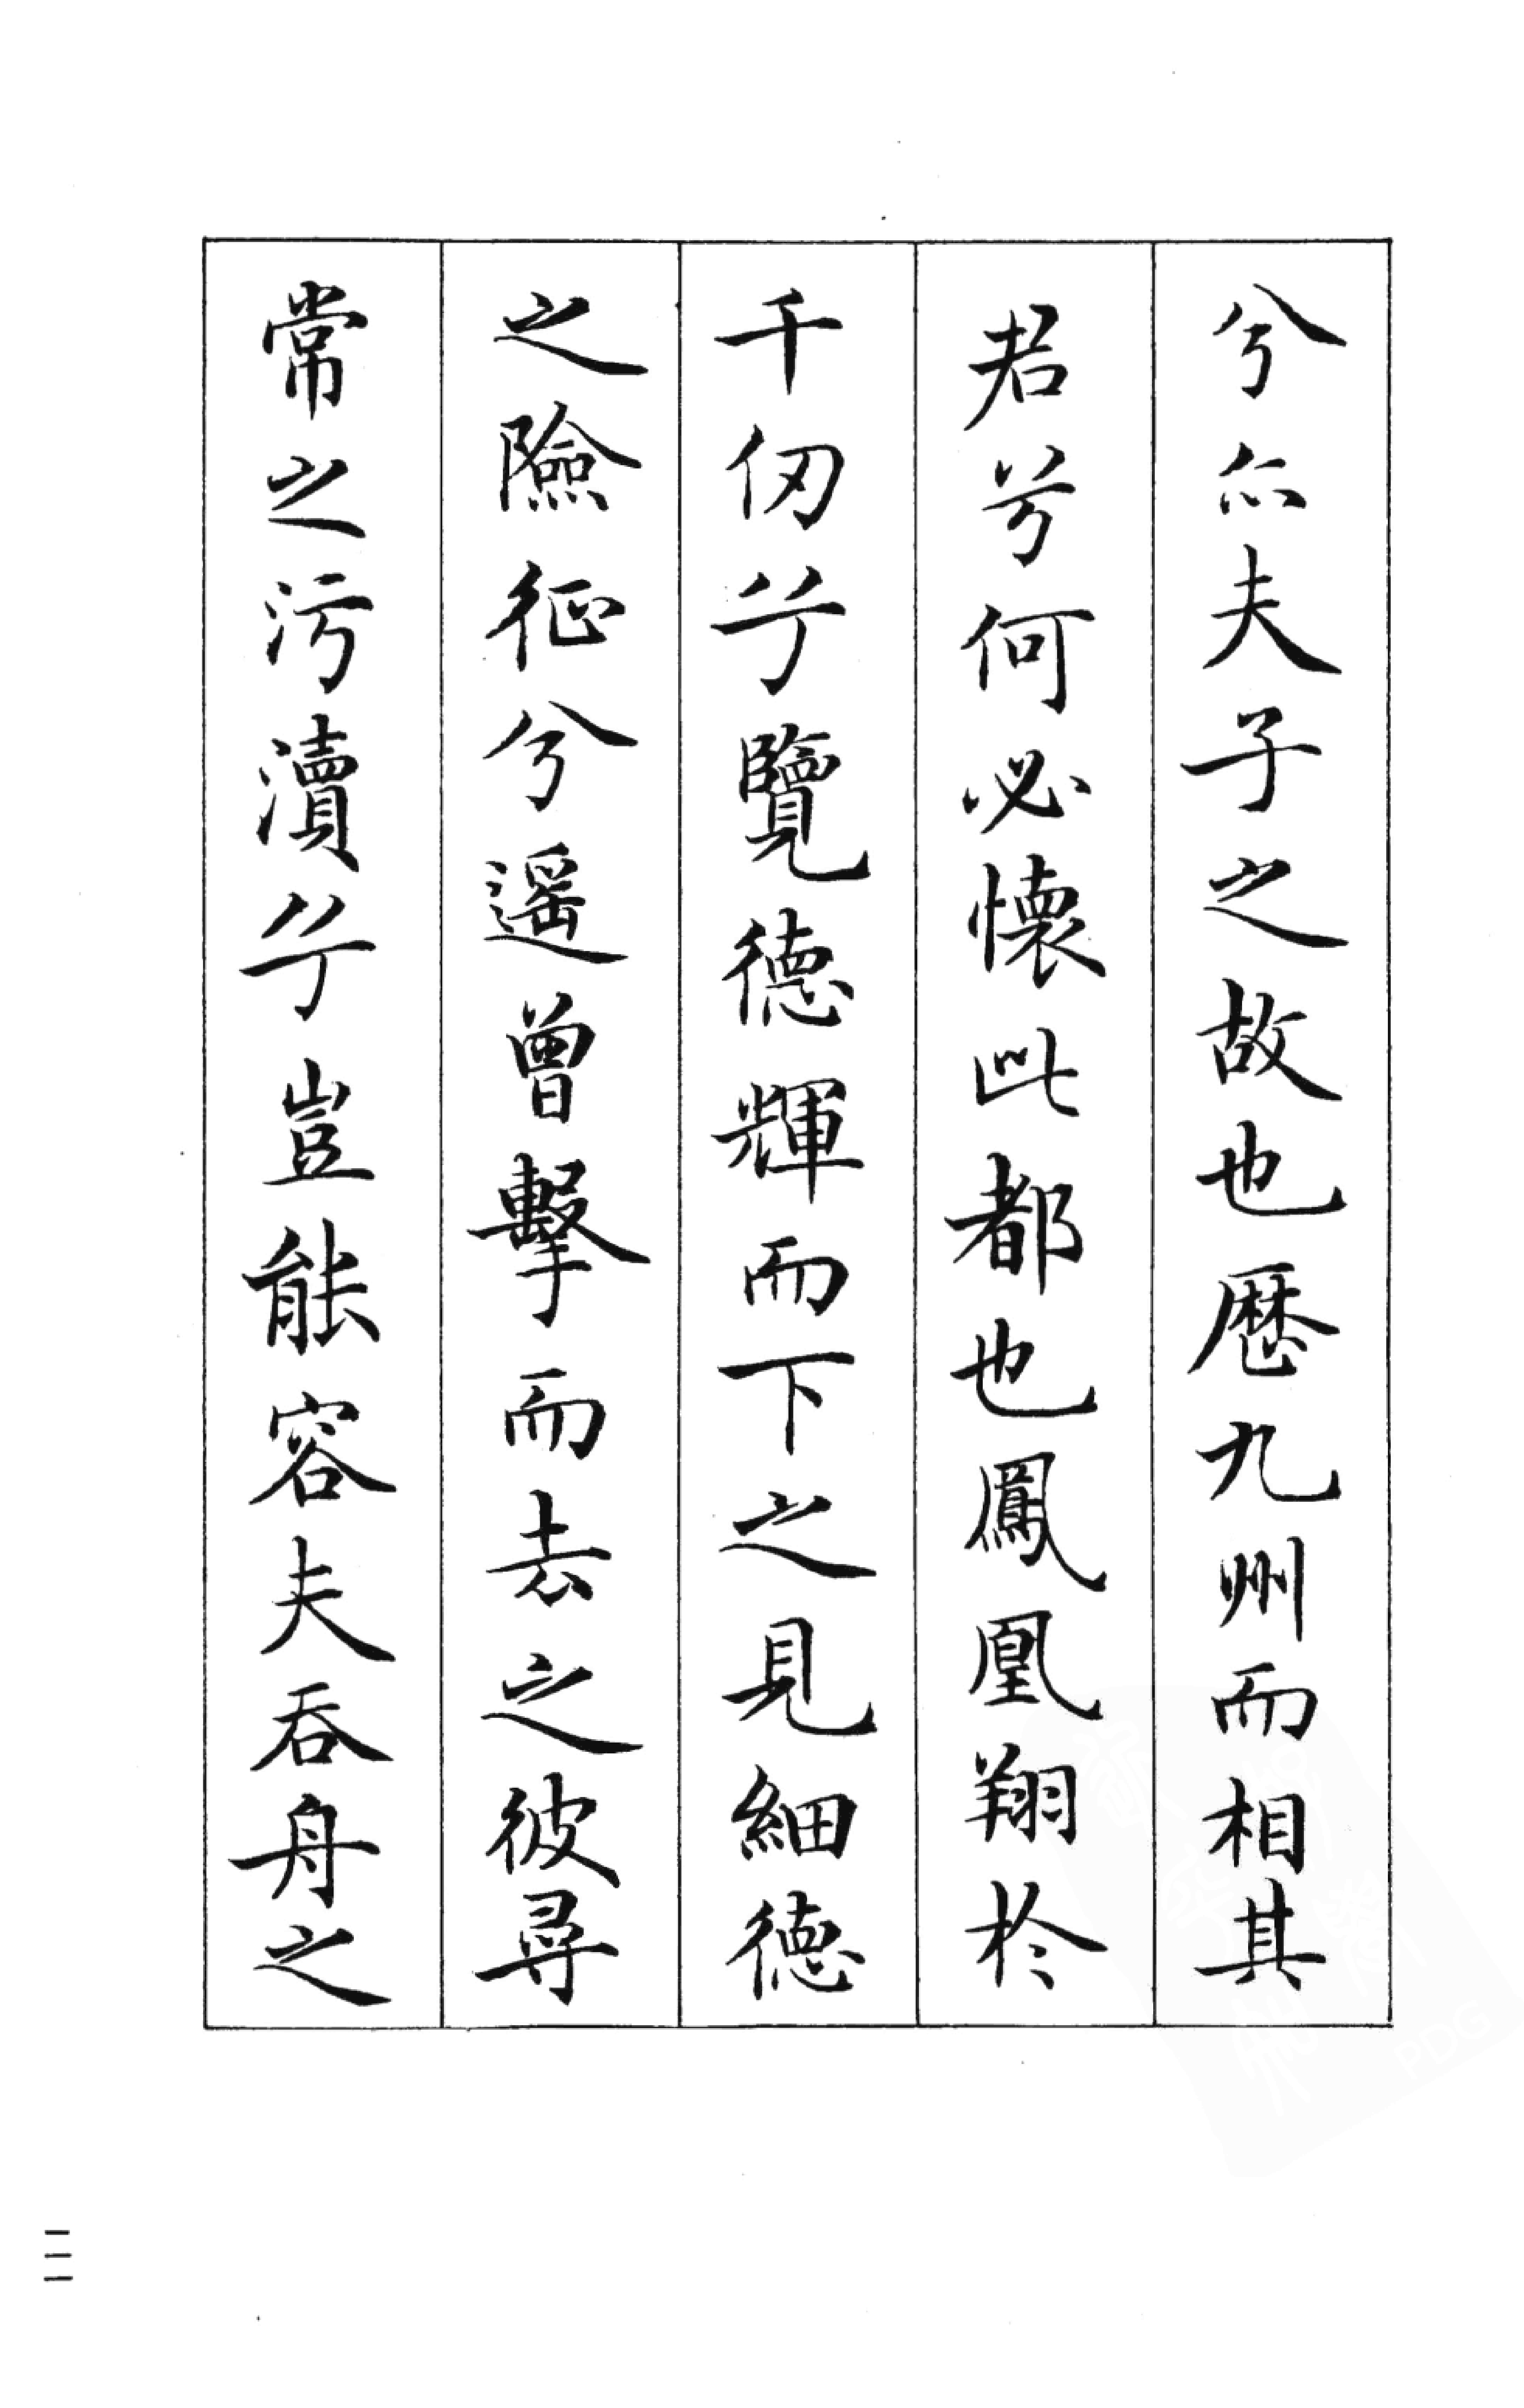 兮亦夫子之故也歷九州而相其
君兮何必懷此都也鳳凰翔於
千仞兮覽德輝而下之見細德
之險征兮遥曾擊而去之彼尋
常之污瀆兮豈能容夫吞舟之
二一